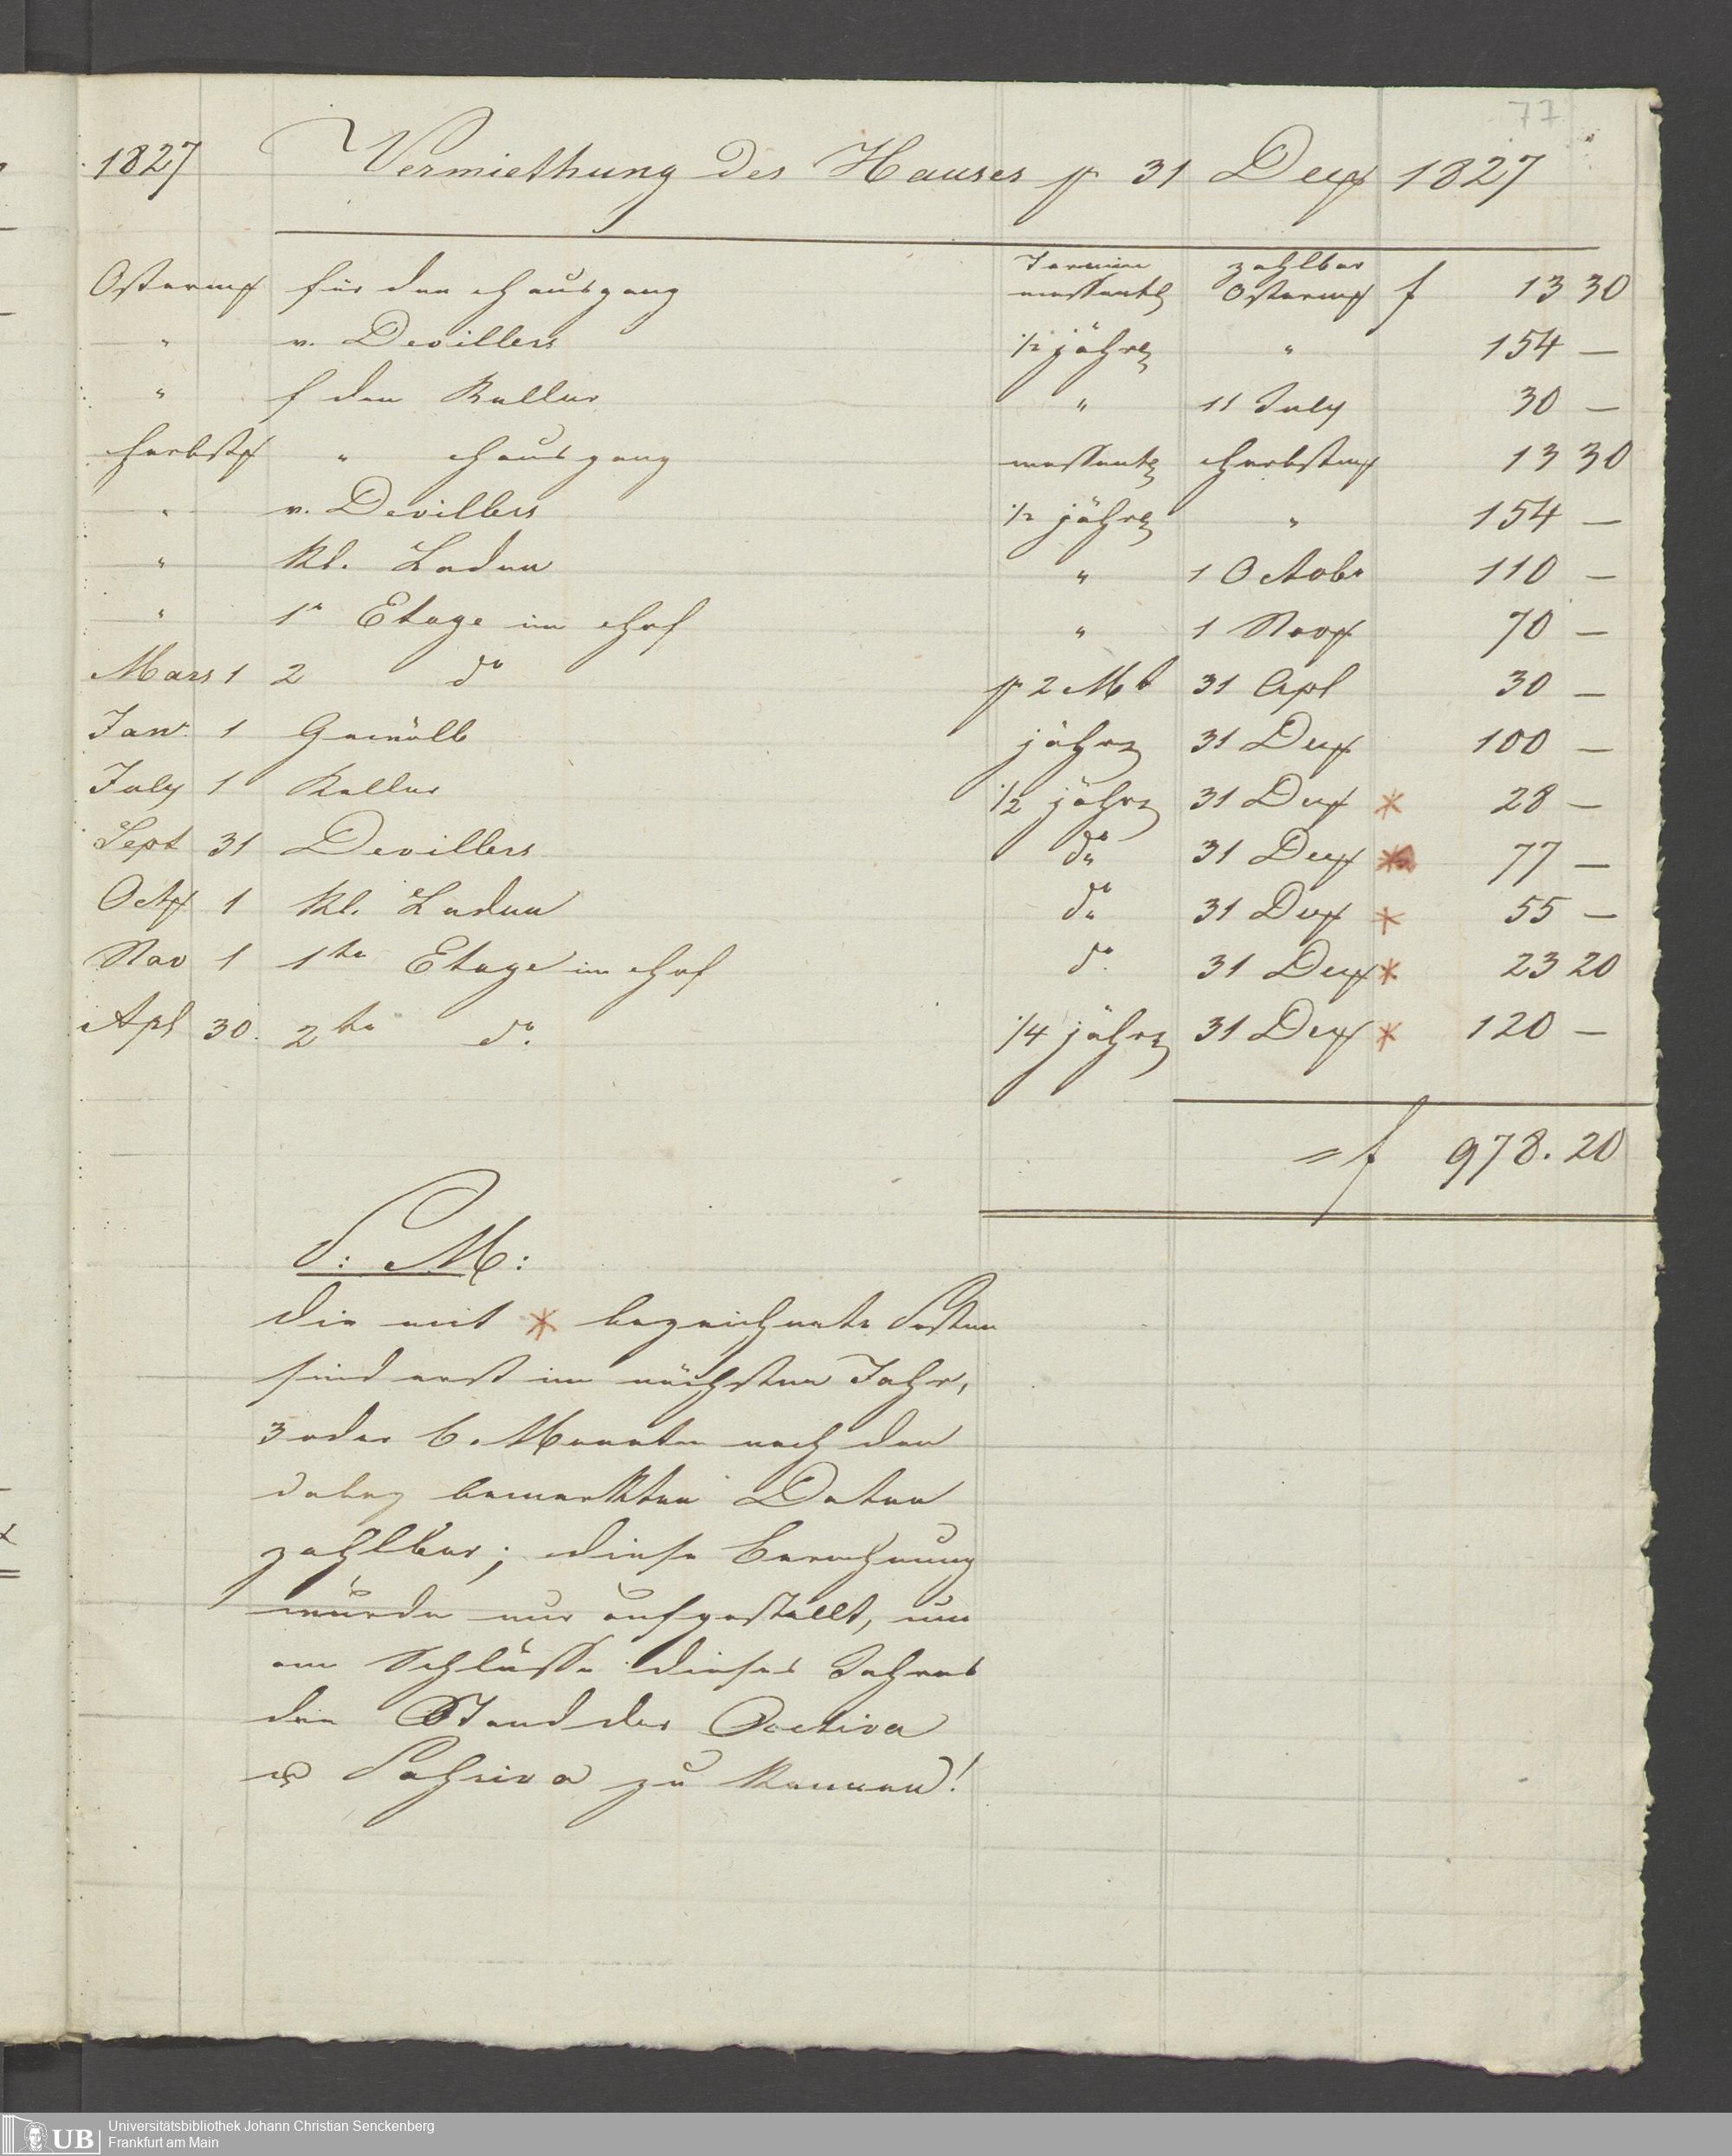 77
1827 Vermiethung des Hauses pr 31 Dec 1827
Termin zahlbar
Osterms für den Hausgang messentl Osterms f 13 30
" v. Devillers 1/2 jährl " 154 —
" f den Keller " 11 July 30 —
Herbstm " Hausgang messentl Herbstms 13 30
" v. Devillers 1/2 jährl " 154 —
" kl. Laden " 1 Octobr 110 —
" 1r Etage im Hof " 1 Nov 70 —
Mars 1 2 do pr 2 Mt 31 Apl 30 —
Janr. 1 Gewölb jährl 31 Dec 100 —
July 1 Keller 1/2 jährl 31 Dec * 28 —
Sept 31 Devillers do 31 Dec * 77 —
Oct 1 kl. Laden do 31 Dec * 55 —
Nov 1 1te Etage im Hof do 31 Dec * 23 20
Apl 30. 2te do. 1/4 jährl 31 Dec * 120 —
= f 978.20
P: M:
die mit * bezeichnete Posten
sind erst im nächsten Jahr,
3 oder 6 Monate nach den
dabey bemerkten Daten
zahlbar; diese Berechnung
wurde nur aufgestellt, um
am Schlusse dieses Jahres
den Stand der Activa
u Passiva zu kennen!
UB Universitätsbibliothek Johann Christian Senckenberg
Frankfurt am Main